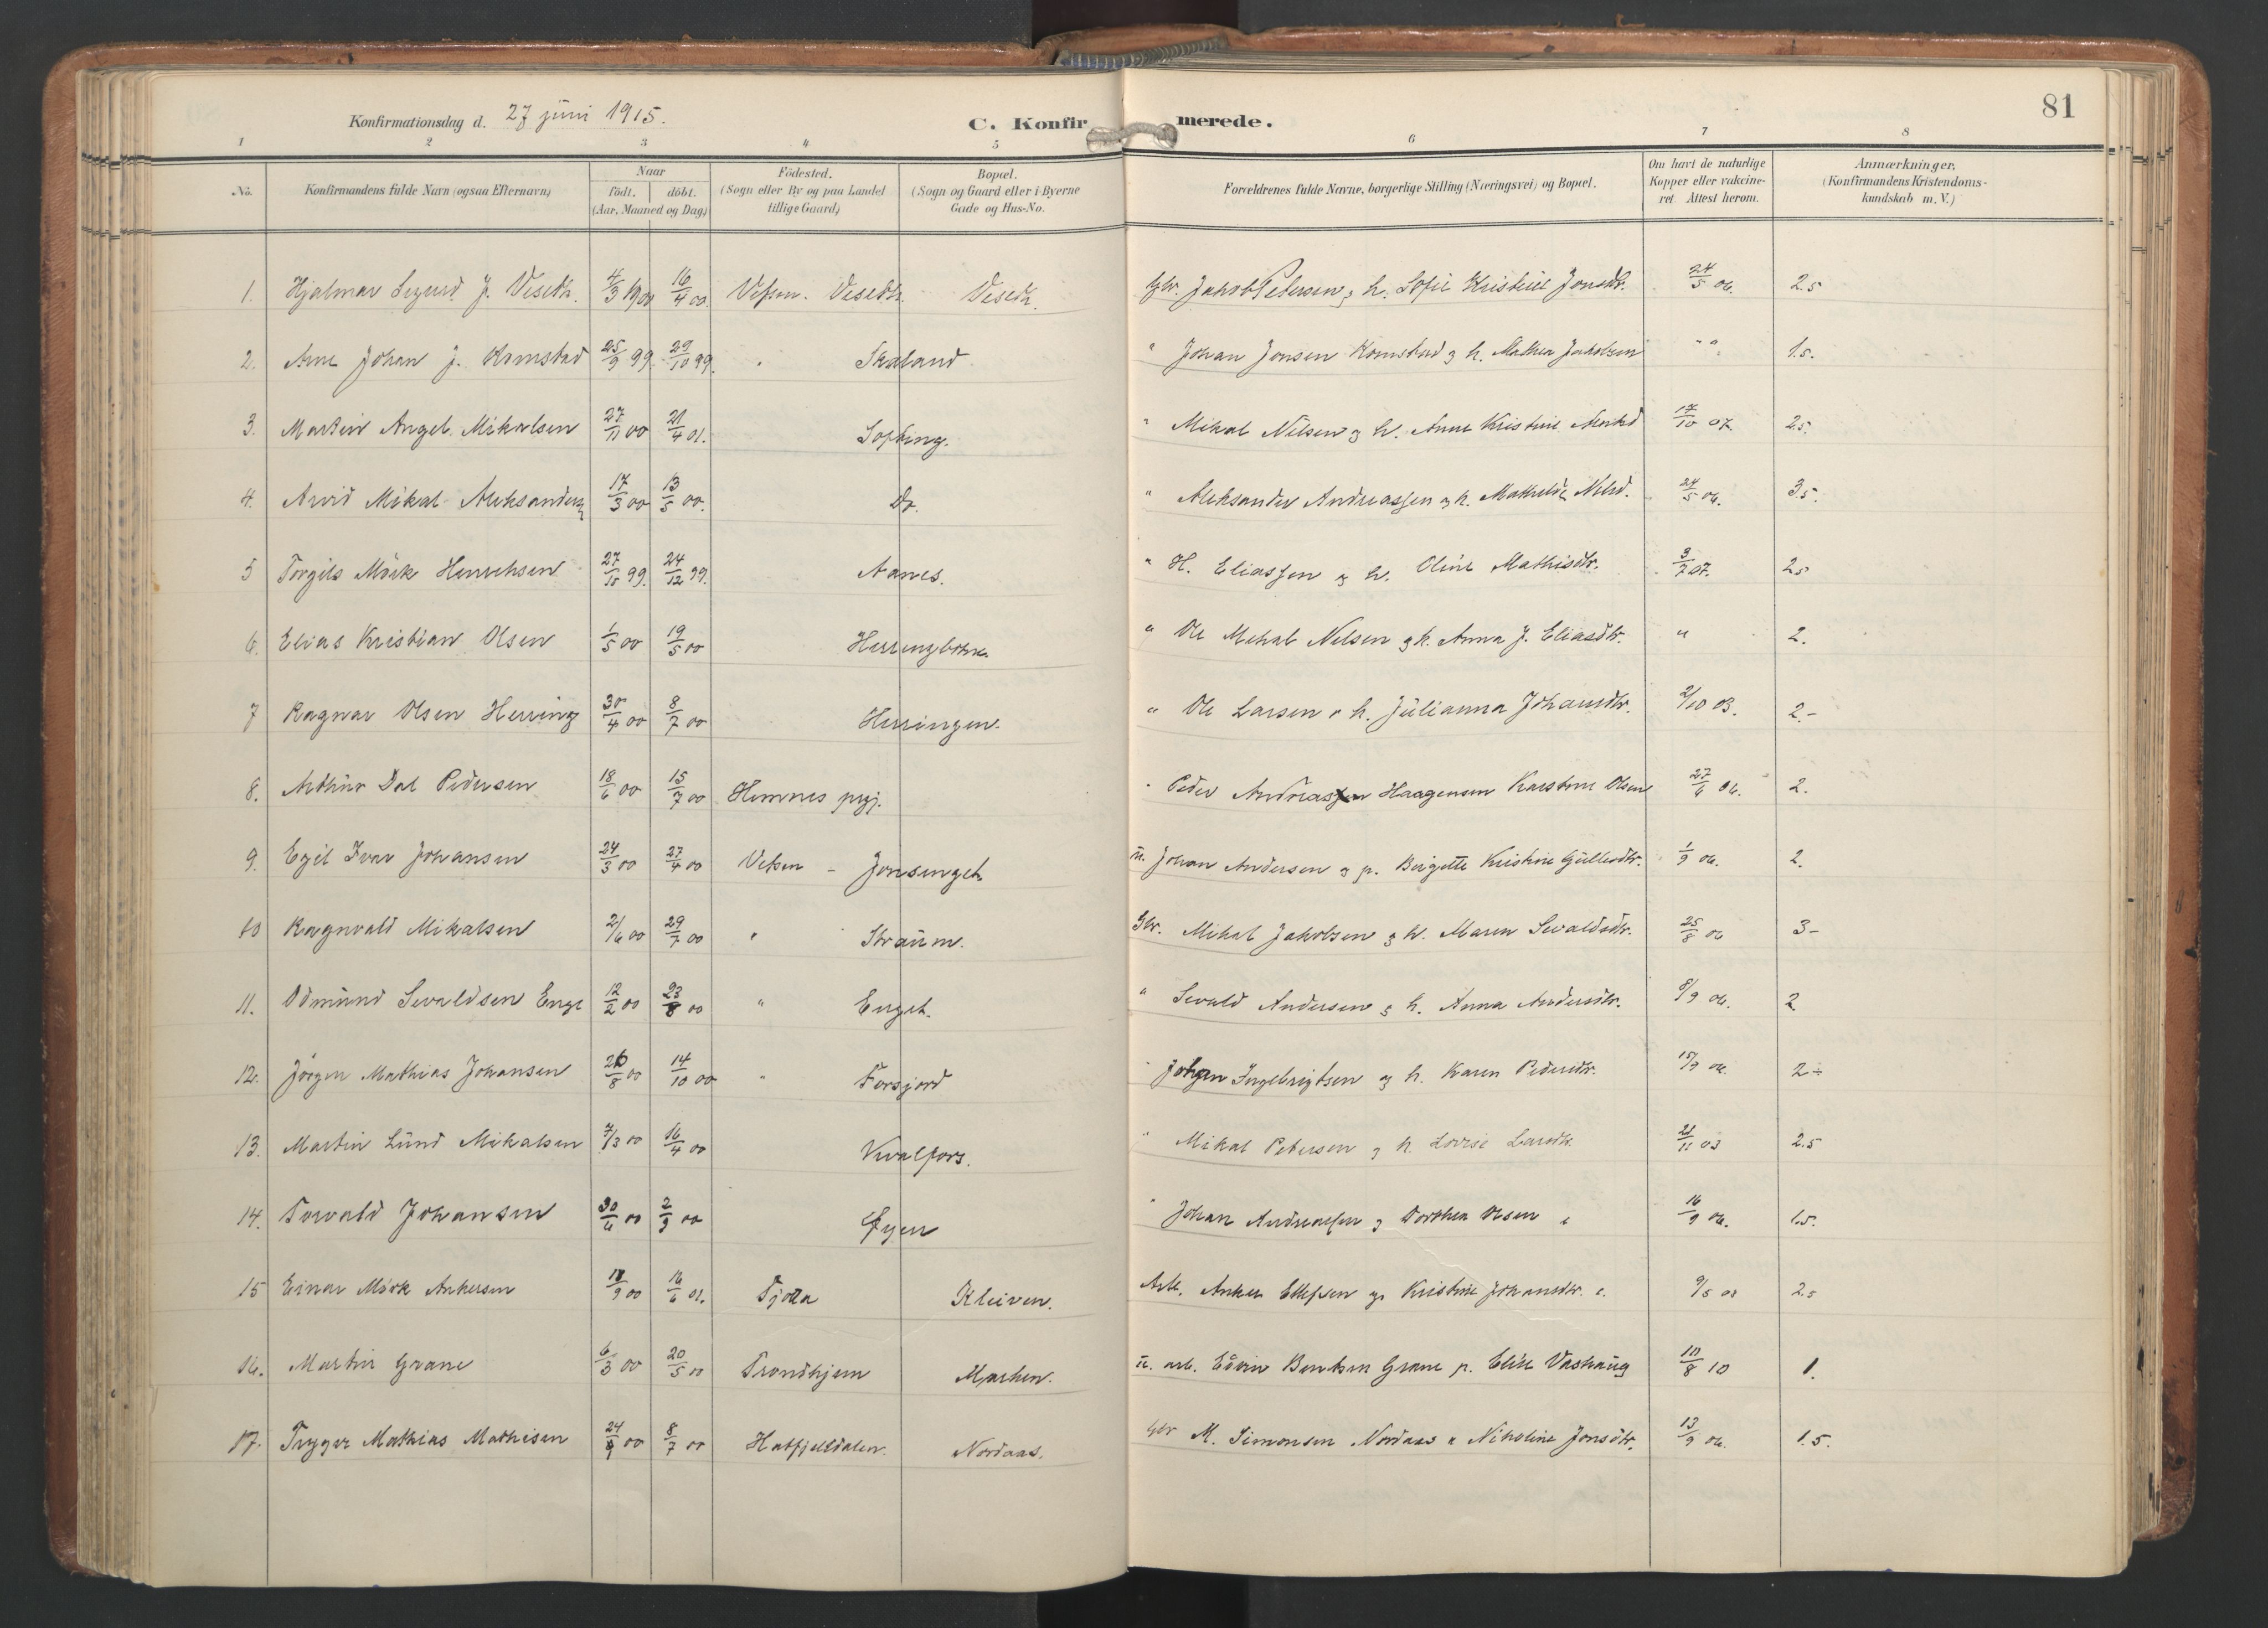 81
Konfirmationsdag d. 27 juni 1915.
C. Konfirmerede.
1 2 3 4 5 6 7 8
No. Konfirmandens fulde Navn (ogsaa Efternavn) Naar født. døbt. (Aar, Maaned og Dag) Fødested. (Sogn eller By og paa Landet tillige Gaard) Bopæl. (Sogn og Gaard eller i Byerne Gade og Hus-No. Forældrenes fulde Navne, borgerlige Stilling (Næringsvei) og Bopæl. Om havt de naturlige Kopper eller vakcineret. Attest herom. Anmærkninger, (Konfirmandens Kristendomskundskab m. V.)
1. Hjalmar Sigurd J. Veseth. 4/3 1900 16/4 00. Vefsen. Veseth. Veseth. Gbr. Jakob Petersen og h. Sofie Kristine Jonsdtr. 24/5 06. 2.5
2. Arne Johan J. Komstad 25/9 99. 29/10 99. " Skaland " Johan Jonsen Komstad og h. Mathea Jakobsen " " 1.5.
3. Martin Angel. Mikalsen 27/11 00 21/4 01. Søfting. " Mikal Nilsen og h. Anne Kristine 17/10 07. 2.5.
4. Arvid Mikal Aleksanders 17/3 00 13/5 00. Do. " Aleksander Andreassen og h. Mathilde Nilsd. 24/5 06. 3.5.
5 Torgils Mørk Henriksen 27/10 99. 24/12 99. Aanes. " H. Eliassen og h. Oline Mathisdtr. 3/7 07. 2.5
6. Elias Kristian Olsen 1/5 00 19/5 00 " Ole Mikal Nilsen og h. Anna J. Eliasdtr. " 2.
7 Ragnar Olsen Herring 30/4 00 8/7 00 Herringen. " Ole Larsen o h. Julianna Johansdtr. 2/10 03. 2.-
8. Arthur Dal Pedersen 18/6 00 15/7 00 Hemnes prgj. " Peder Andreassen Haagensen Karstine Olsen 27/6 06. 2.
9. Egil Ivar Johansen 24/3 00 27/4 00 Vefsen - Jonsenget u. Johan Andersen og p. Birgitte Kristine 1/9 06. 2.
10 Ragnvald Mikalsen 2/6 00 29/7 00 " Straum. Gbr. Mikal Jakobsen og h. Maren Sevaldsdtr. 25/8 06 3-
11. Odmund Sevaldsen Enge 12/2 00 23/8 00 " Enget. " Sevald Andersen og h. Anna Andersdtr. 8/9 06. 2
12. Jørgen Mathias Johansen 26/8 00 14/10 00 " Forsjord " Johan Ingebrigtsen og h. Karen Pedersdtr. 15/9 06. 2 ÷
13. Martin Lund Mikalsen 7/3 00 16/4 00 Kvalfors. " Mikal Petersen og h. Lovise Larsdtr. 21/11 03 2.5
14. Torvald Johansen 30/6 00 2/9 00 Øyen " Johan Andreassen og Dorthea Olsen " 16/9 06. 1.5.
15 Einar Mørk Ankersen 18/9 00 16/6 01. Tjøtta Kleiven. Arb. Anker Ellefsen og Kristine Johansdtr. 9/5 03 2.5
16. Martin Grane 6/3 00 20/5 00 Trondhjem Marken. u. arb. Edvin Bentsen Grane p. Elise Vashaug 10/8 10 1.
17. Trygve Mathias Mathisen 24/4 00 8/7 00 Hatfjelddalen. Nordaas. Gbr M. Simonsen Nordaas " Nikoline Jonsdtr. 13/9 06. 1.5.